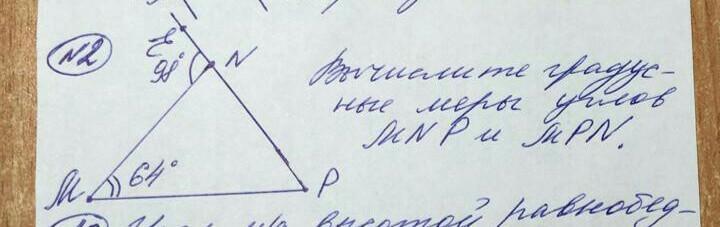 №2
E
98°
N
Вычислите градус-
ные меры углов
MNP и MPN.
M
64°
P
высотой равнобед-